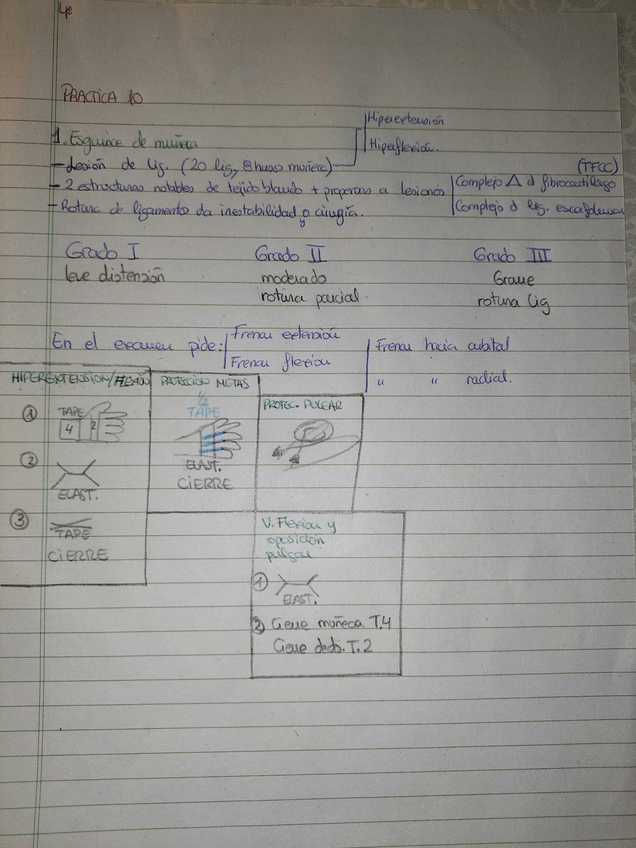 PRACTICA 10
1. Esguince de muñeca
Hiperextensión
Hiperflexión.
- Lesión de lig. (20 lig, 8 hueso muñeca)
- 2 estructuras notables de tejido blando + propensas a lesiones
(TFCC)
Complejo Δ d fibrocartílago
Complejo d lig. escafolunar
- Rotura de ligamento da inestabilidad y/o cirugía.
Grado I Grado II Grado III
leve distensión moderado Grave
rotura parcial. rotura lig
En el examen pide:
Frenar extensión
Frenar flexión
Frenar hacia cubital
" " radial.
HIPEREXTENSION/FLEXIÓN
① TAPE
4 2
②
ELAST.
③ TAPE
CIERRE
PROTECCION METAS
1/2
TAPE
ELAST.
CIERRE
PROTEC. PULGAR
V. Flexion y
oposición
pulgar
①
ELAST.
② Cierre muñeca T.4
Cierre dedo. T.2